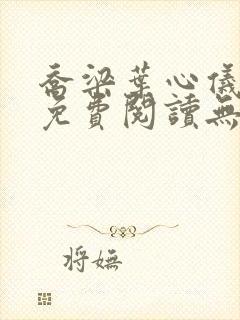 喬梁葉心儀
免費閱讀無
将嫵